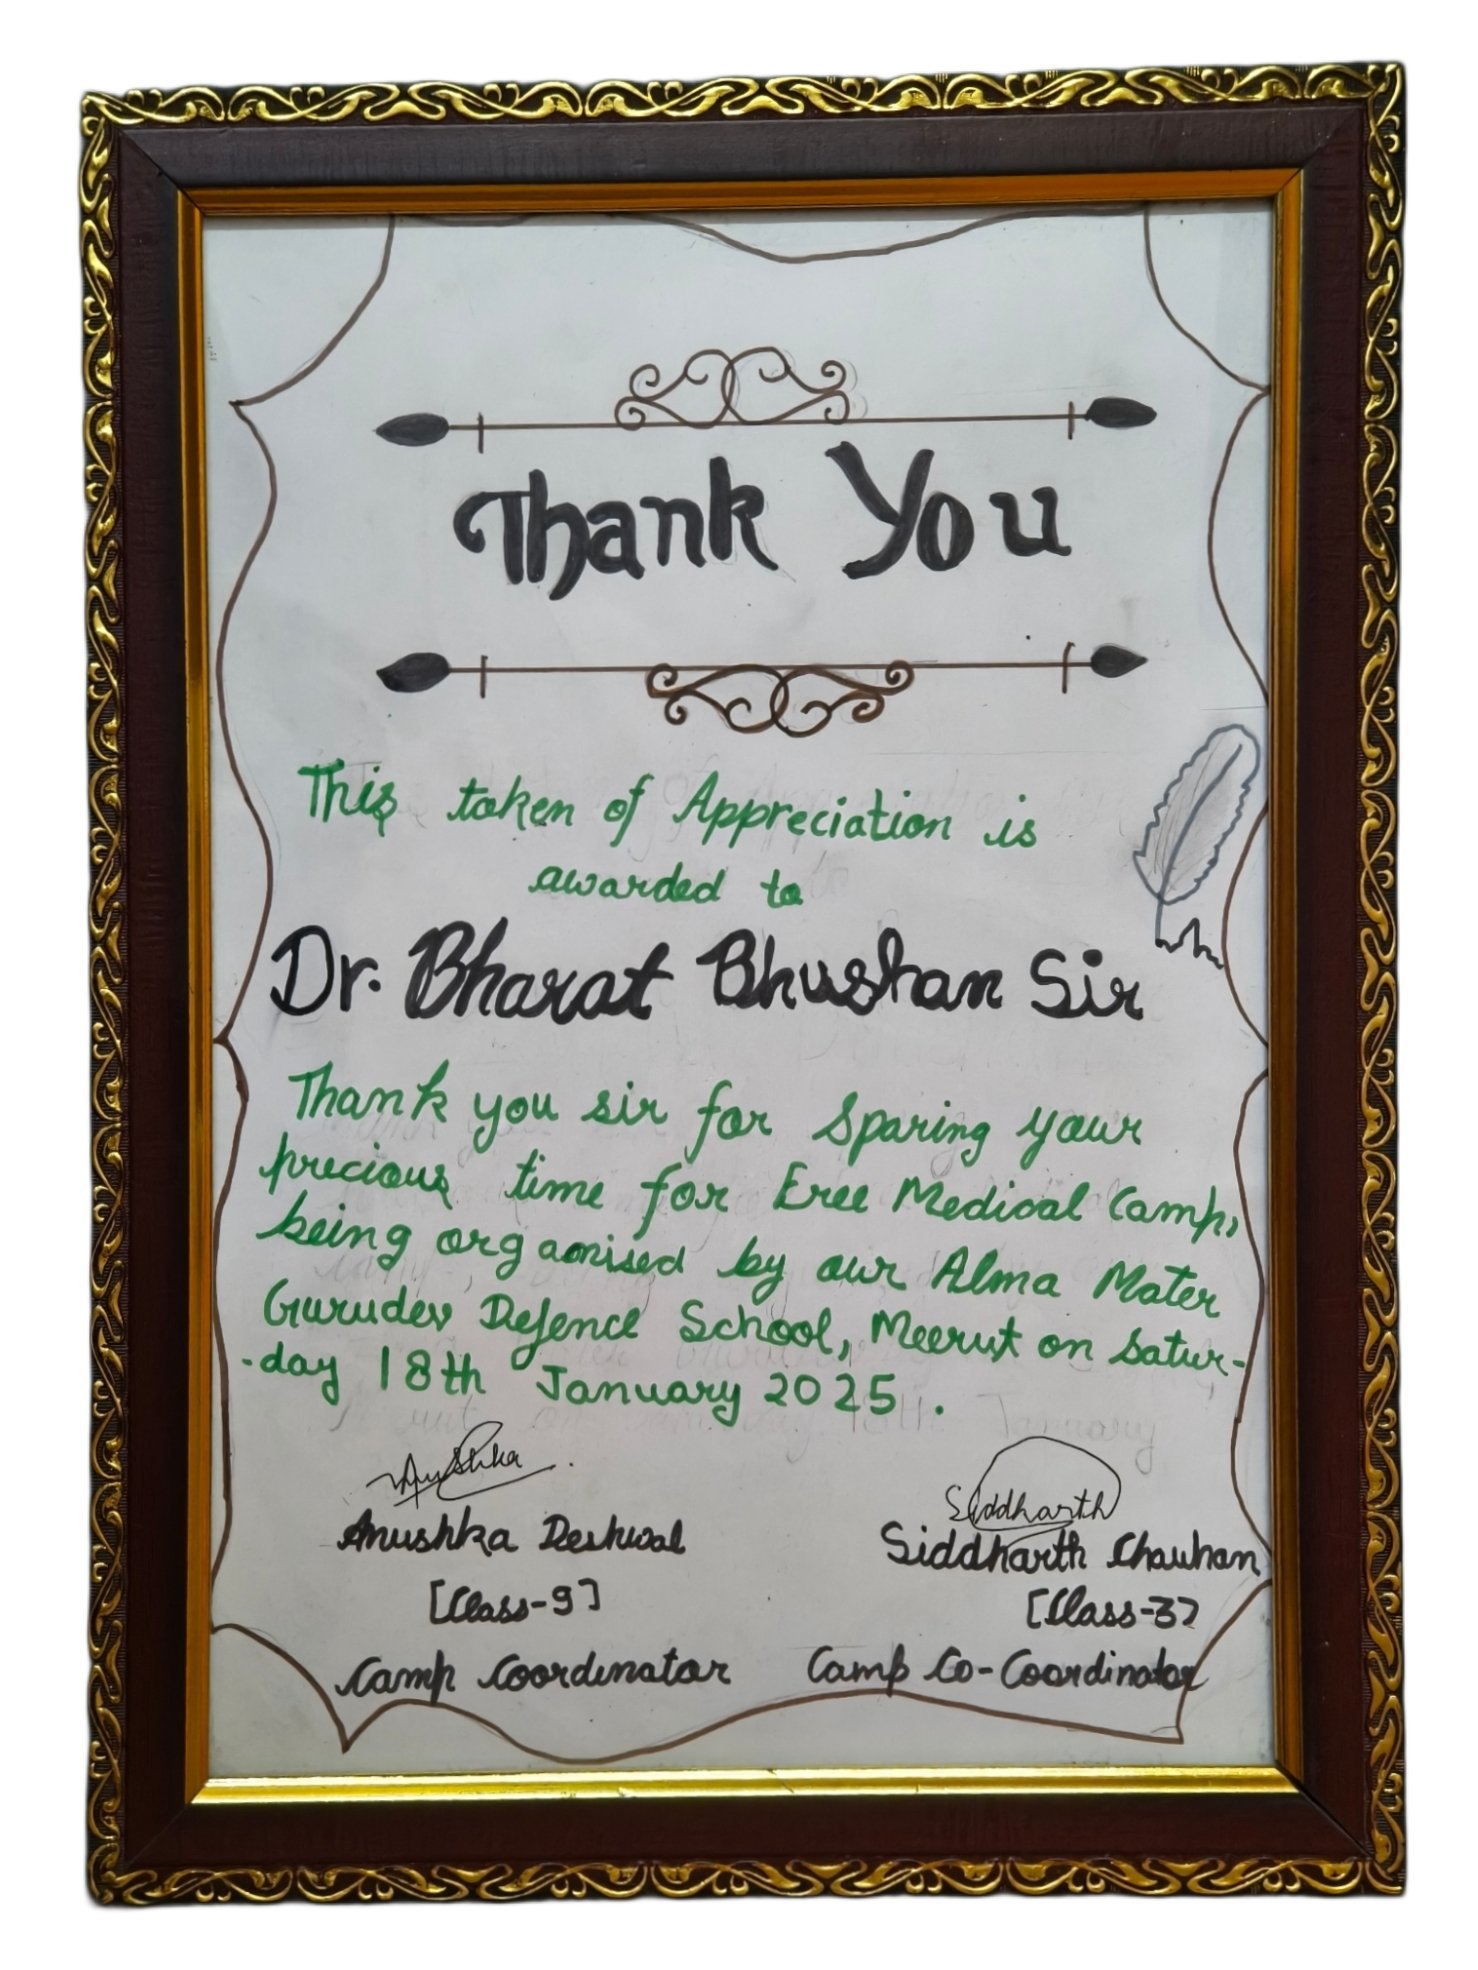 Thank You
This token of Appreciation is
awarded to
Dr. Bharat Bhushan Sir
Thank you sir for sparing your
precious time for Free Medical Camp,
being organised by our Alma Mater
Gurudev Defence School, Meerut on Satur-
-day 18th January 2025.
Anushka
Siddharth
Anushka Deshwal
Siddharth Chauhan
[Class-9]
[Class-3]
Camp Coordinator
Camp Co-Coordinator